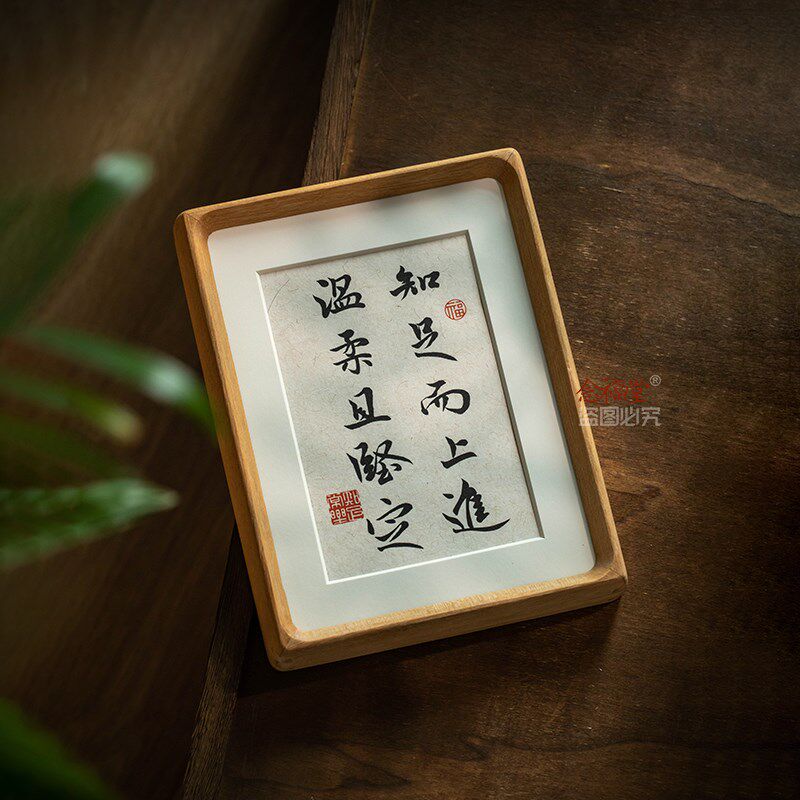 知足而上進
溫柔且堅定
福
盗图必究